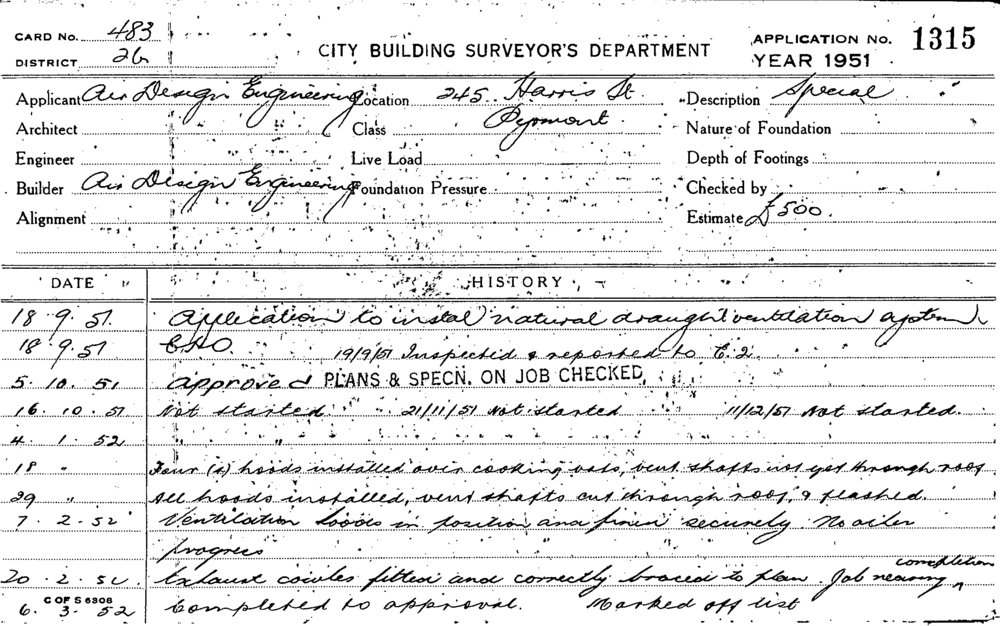 CARD No. 483
DISTRICT 26
CITY BUILDING SURVEYOR'S DEPARTMENT
APPLICATION No. 1315
YEAR 1951
Applicant Air Design Engineering Location 245 Harris St. Description Special
Architect Class Pyrmont Nature of Foundation
Engineer Live Load Depth of Footings
Builder Air Design Engineering Foundation Pressure Checked by
Alignment Estimate £500.
DATE HISTORY
18.9.51. Application to instal natural draught ventilation system
18.9.51 19/9/51 Inspected & reported to E.2.
5.10.51 Approved PLANS & SPECN. ON JOB CHECKED,
16.10.51 Not started 21/11/51 Not started 11/12/51 Not started.
4.1.52 " "
18 " Four (4) hoods installed over cooking vats, vent shafts not yet through roof
29 " All hoods installed, vent shafts cut through roof, & flashed.
7.2.52 Ventilation hoods in position and fixed securely No other
progress
20.2.52 Exhaust cowles fitted and correctly braced to plan. Job nearing completion
C OF S 6306
6.3.52 Completed to approval. Marked off list